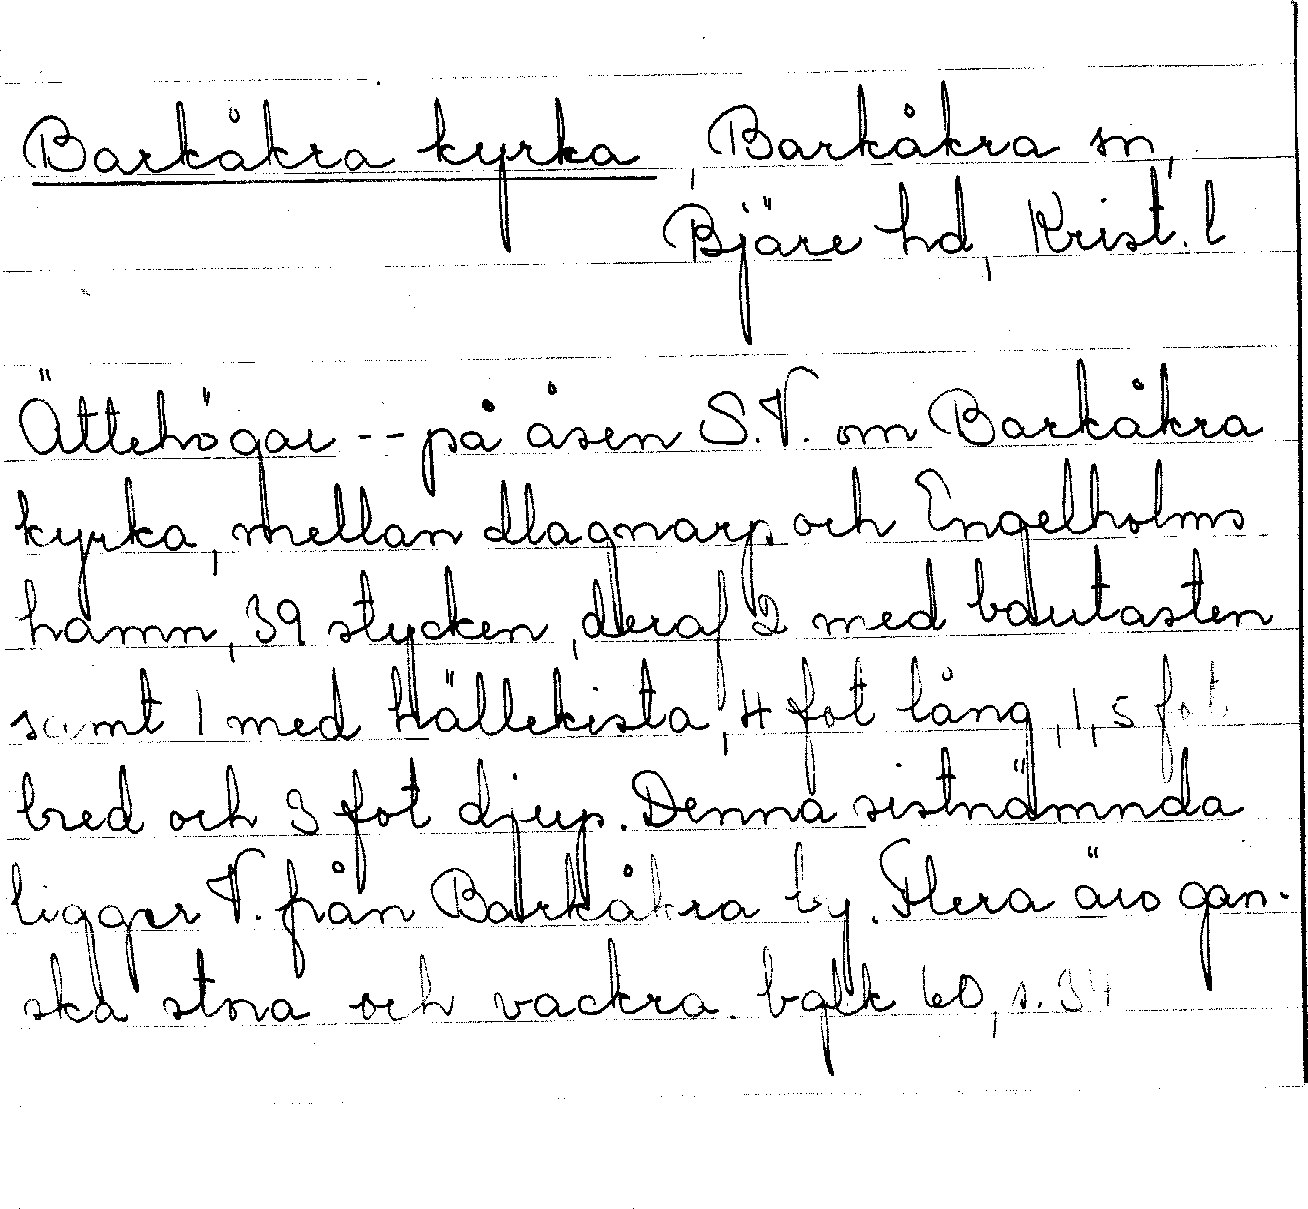 Barkåkra kyrka, Barkåkra sn,
Bjäre hd, Krist. l
Ättehögar -- på åsen S.V. om Barkåkra
kyrka, mellan Magnarp och Engelholms
hamn, 39 stycken, deraf 2 med bautasten
samt 1 med hällekista, 4 fot lång, 1,5 fot
bred och 3 fot djup. Denna sistnämnda
ligger V. från Barkåkra by. Flera äro gan-
ska stora och vackra. bglk 60, s. 34